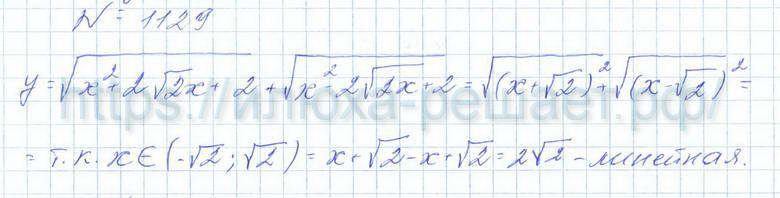 № 1129
y=√(x²+2√2x+2)+√(x²-2√(2x)+2)=√((x+√2)²)+√((x-√2)²)=
https://илюха-решает.рф/
= т.к. x∈(-√2;√2)=x+√2-x+√2=2√2-линейная.